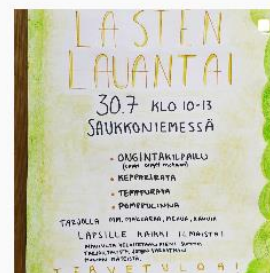 LASTEN
LAUANTAI
30.7 KLO 10-13
SAUKKONIEMESSÄ
• ONGINTAKILPAILU
• KEPPARIRATA
• TEMPPURATA
• POMPPULINNA
TARJOLLA MM. MAKKARAA, MEHUA, KAHVIA
LAPSILLE KAIKKI ILMAISTA!
TERVETULOA!